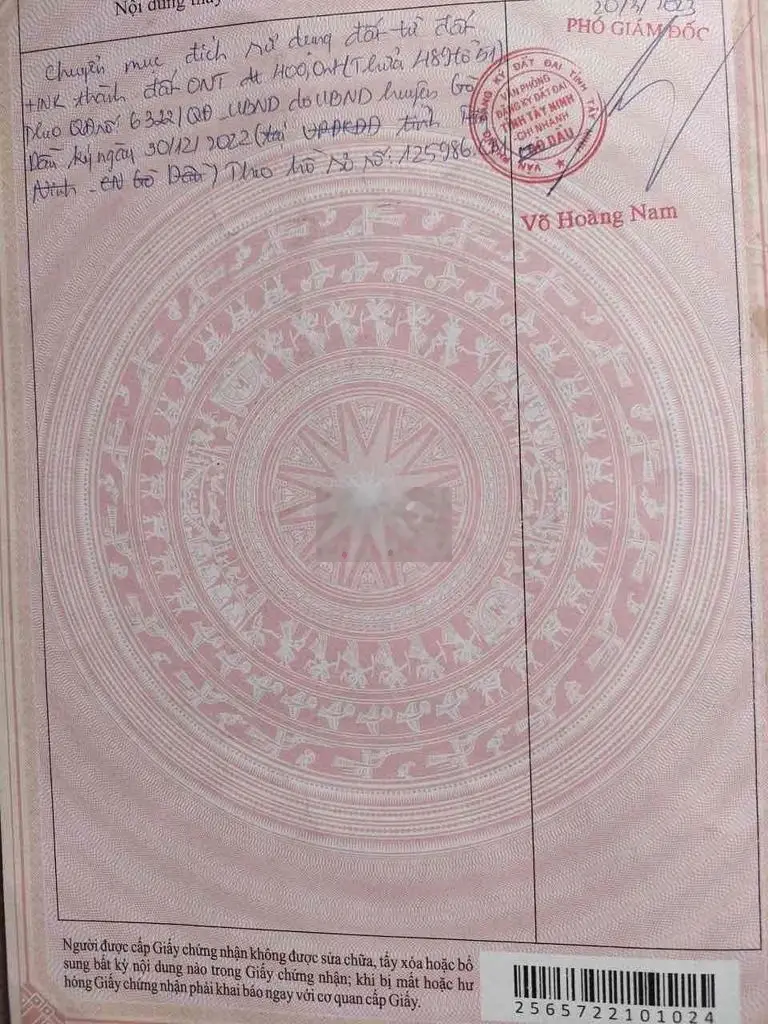 Nội dung thay
20/3/2023
PHÓ GIÁM ĐỐC
Chuyển mục đích sử dụng đất từ đất
HNK thành đất ONT dt 400,0m² (Thửa 489 tờ 51)
theo QĐ số: 6322/QĐ-UBND do UBND huyện Gò
Dầu ký ngày 30/12/2022 (tại VPĐKĐĐ tỉnh
Ninh - CN Gò Dầu) Theo hồ sơ số: 125986.
VĂN PHÒNG ĐĂNG KÝ ĐẤT ĐAI TỈNH TÂY
VĂN PHÒNG
ĐĂNG KÝ ĐẤT ĐAI
TỈNH TÂY NINH
CHI NHÁNH
GÒ DẦU
Võ Hoàng Nam
Người được cấp Giấy chứng nhận không được sửa chữa, tẩy xóa hoặc bổ
sung bất kỳ nội dung nào trong Giấy chứng nhận; khi bị mất hoặc hư
hỏng Giấy chứng nhận phải khai báo ngay với cơ quan cấp Giấy.
2565722101024